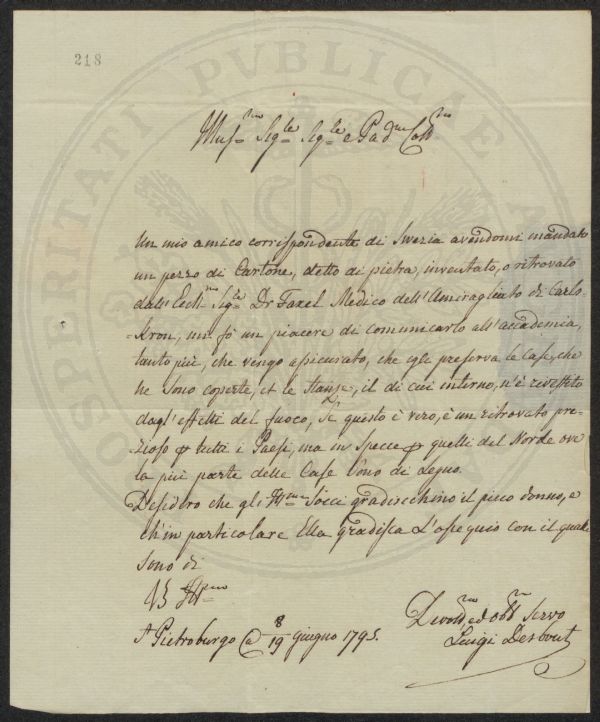 218
Illus.mo Sig.le Sig.le e Pad.n Coll.mo
Un mio amico corrispondente di Svezia avendomi mandato
un pezzo di Cartone, detto di pietra, inventato, o ritrovato
dall'Ecc.mo Sig.le Dr Faxel Medico dell'Amiragliato di Carls-
-kron, mi fò un piacere di comunicarlo all'accademia,
tanto più, che vengo assicurato, che egli preserva le Case, che
ne sono coperte, et le stanze, il di cui interno, n'è rivestito
dagl'effetti del fuoco, Se questo è vero, è un ritrovato pre-
zioso p tutti i Paesi, ma in specie p quelli del Norde ove
la più parte delle Case sono di Legno.
Desidero che gli Ill.mi Socci gradischino il picco donno, e
ch'in particolare Ella gradisca L'ossequio con il quale
sono di
VS Ill.mo
St Pietroburgo @ 8/19 giugno 1795.
Devot.mo ed obb.mo Servo
Luigi Desbout
PROSPERITATI PUBLICAE